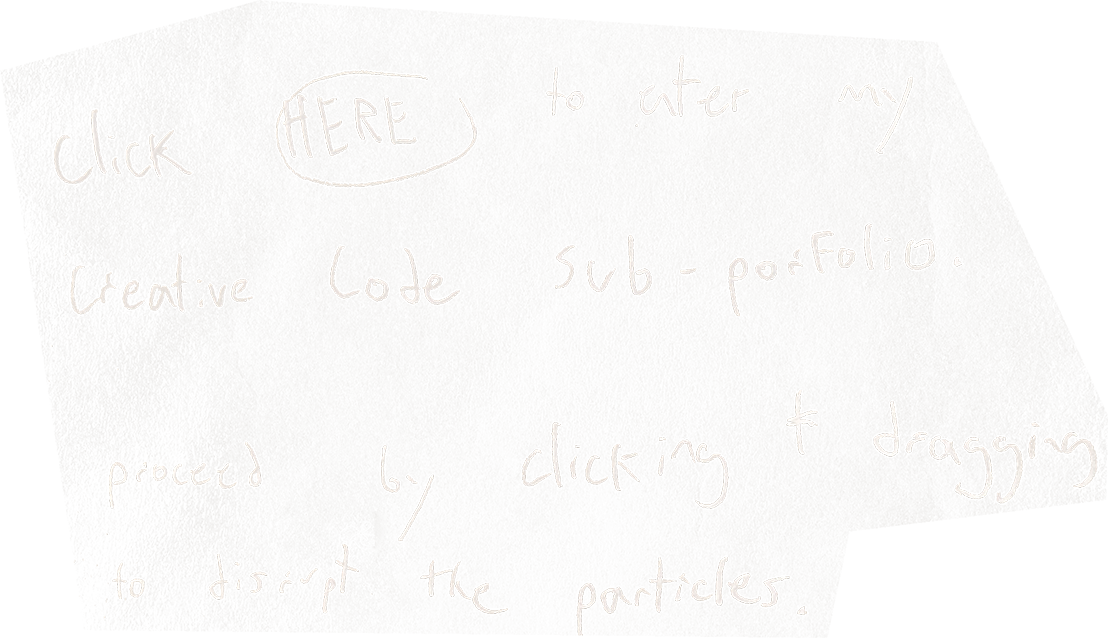 Click HERE to enter my
Creative Code Sub-portfolio.
proceed by clicking + dragging
to disrupt the particles.